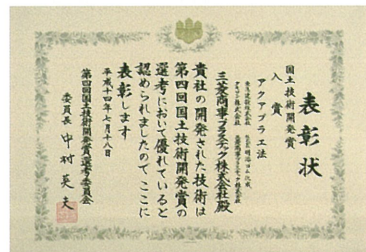 表彰状
国土技術開発賞
入賞
アクアプラ工法
三菱商事プラスチック株式会社殿
貴社の開発された技術は
第四回国土技術開発賞の
選考において優れていると
認められましたので ここに
表彰します
平成十四年七月十八日
第四回国土技術開発賞選考委員会
委員長 中村英夫